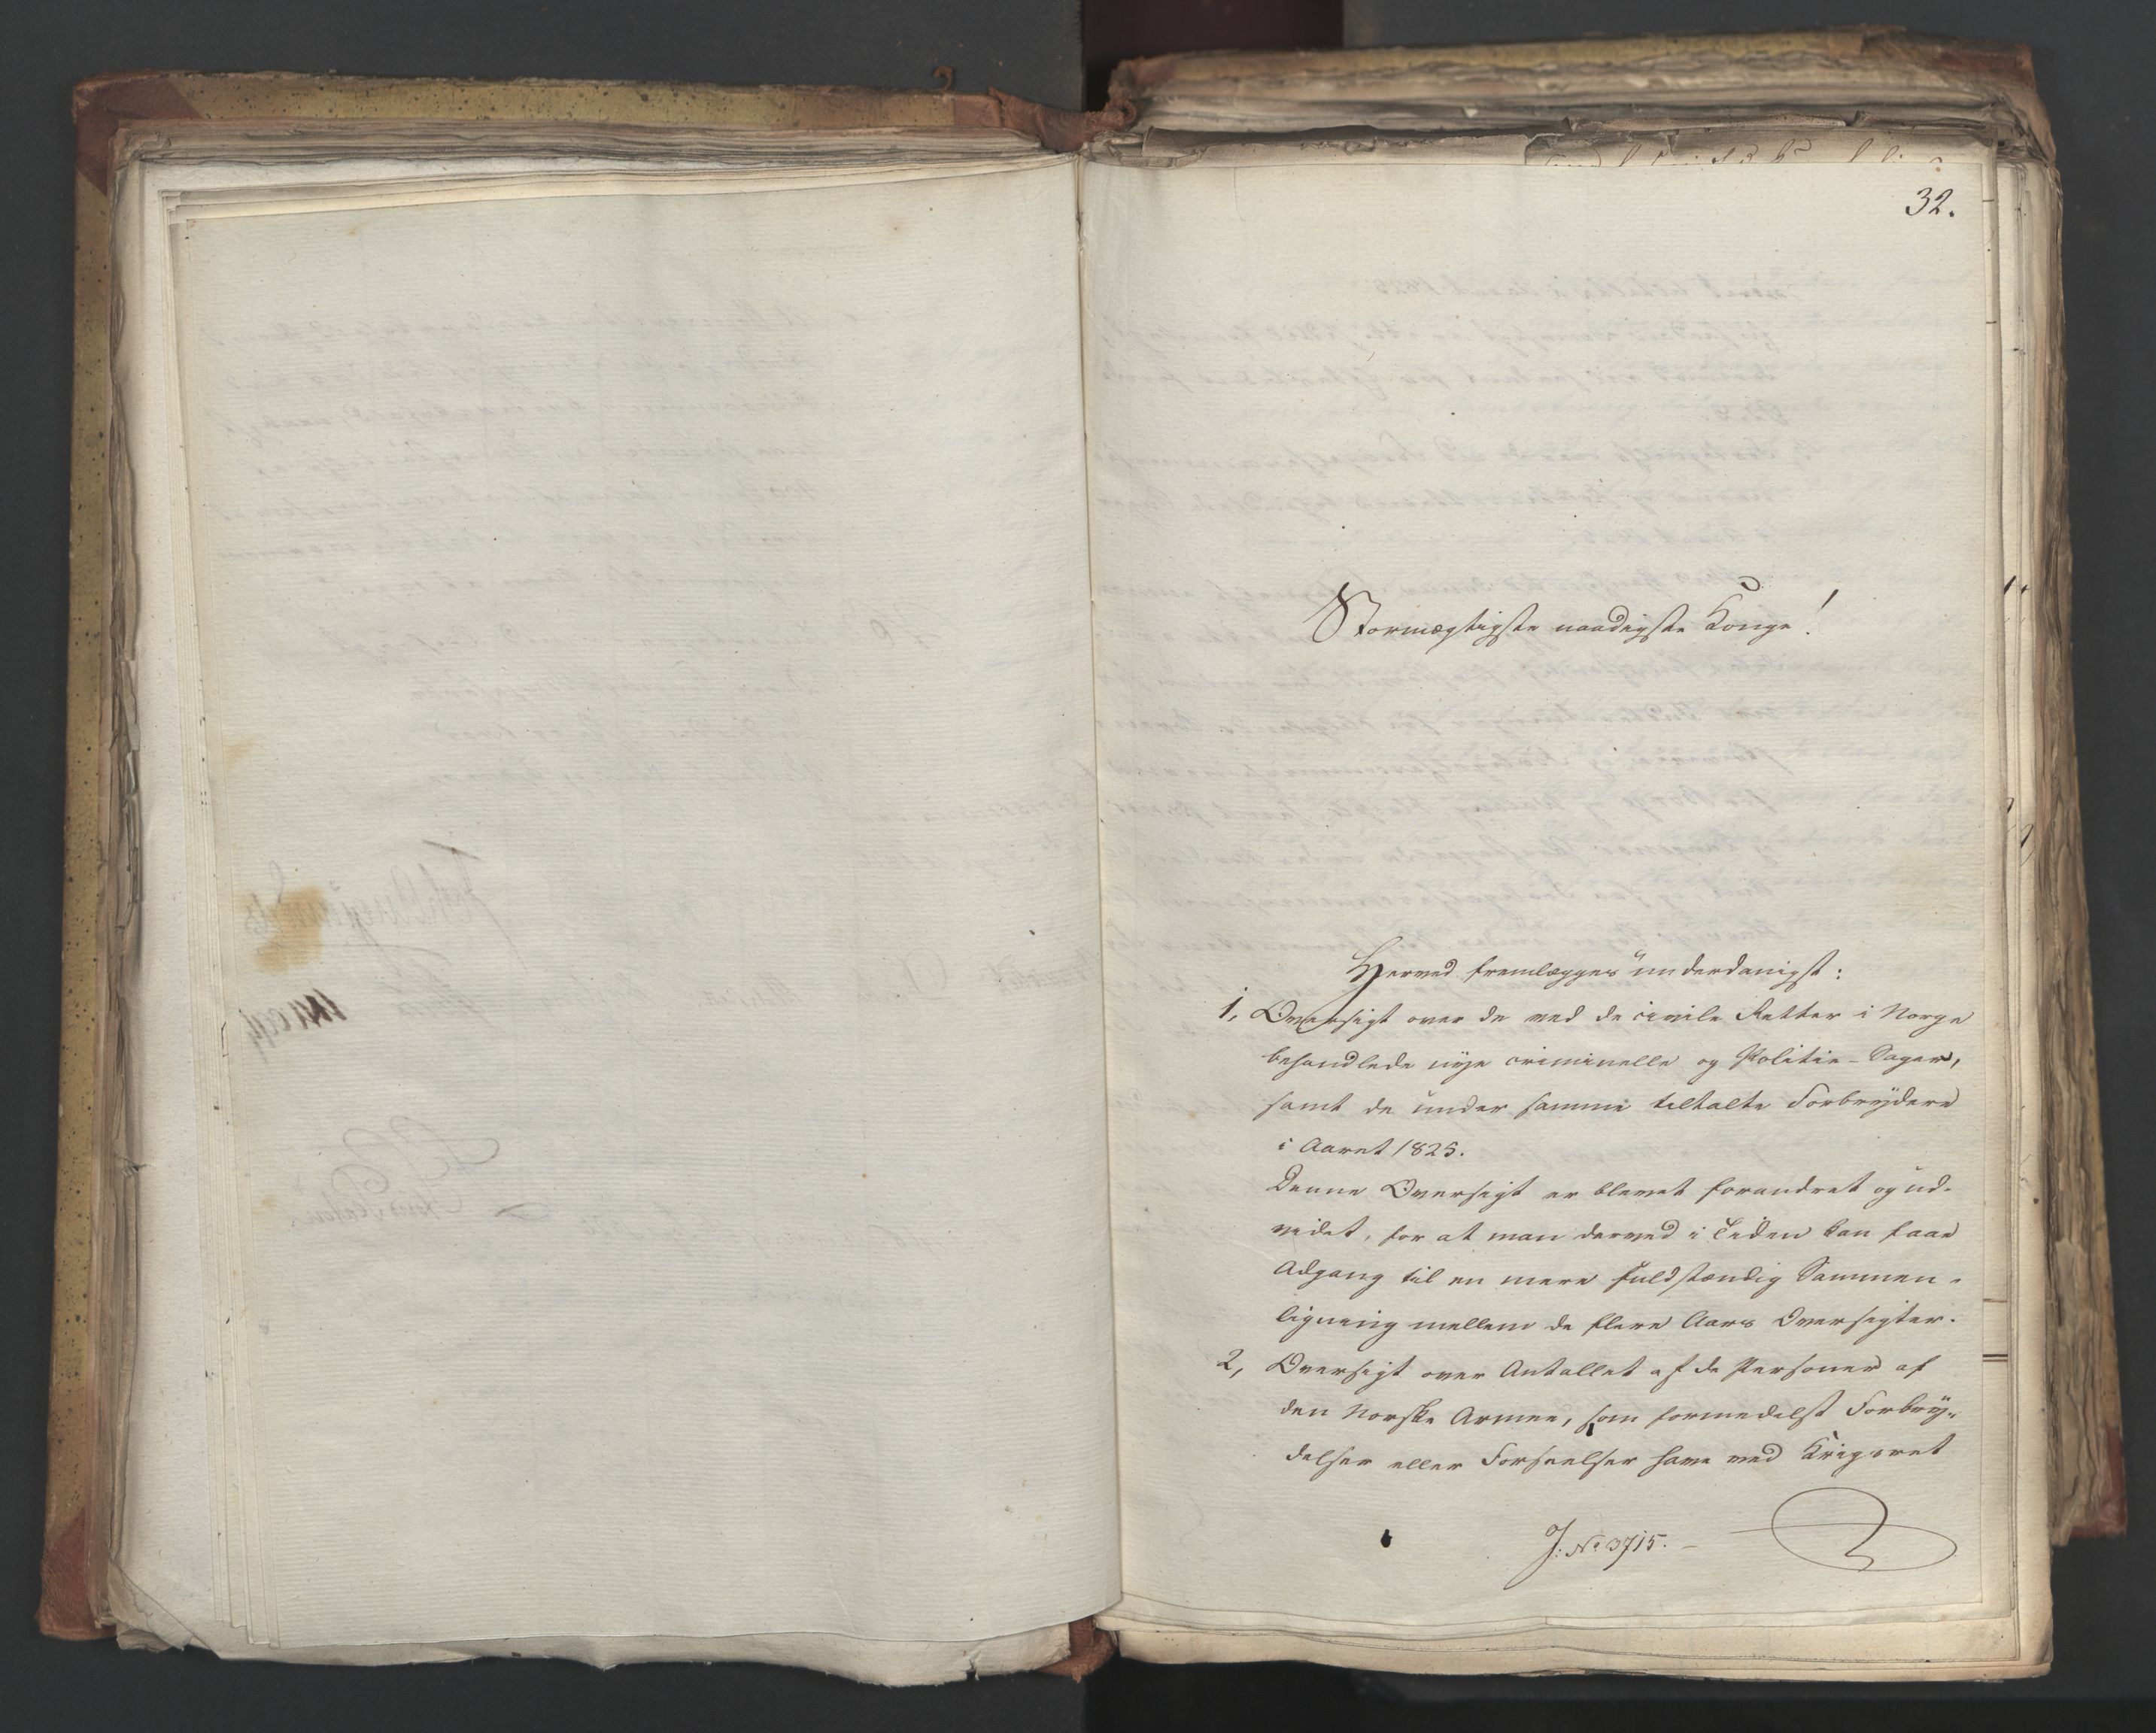 32.
Stormægtigste naadigste Konge!
Herved fremlægges underdanigst:
1, Oversigt over de ved de civile Retter i Norge
behandlede nye criminelle og Politie-Sager,
samt de under samme tiltalte Forbrydere
i Aaret 1825.
Denne Oversigt er blevet forandret og ud-
videt, for at man derved i Tiden kan faae
Adgang til en mere fuldstændig Sammen-
ligning mellem de flere Aars Oversigter.
2, Oversigt over Antallet af de Personer af
den Norske Armee, som formedelst Forbry-
delser eller Forseelser have ved Krigsret
J: No 3715.-